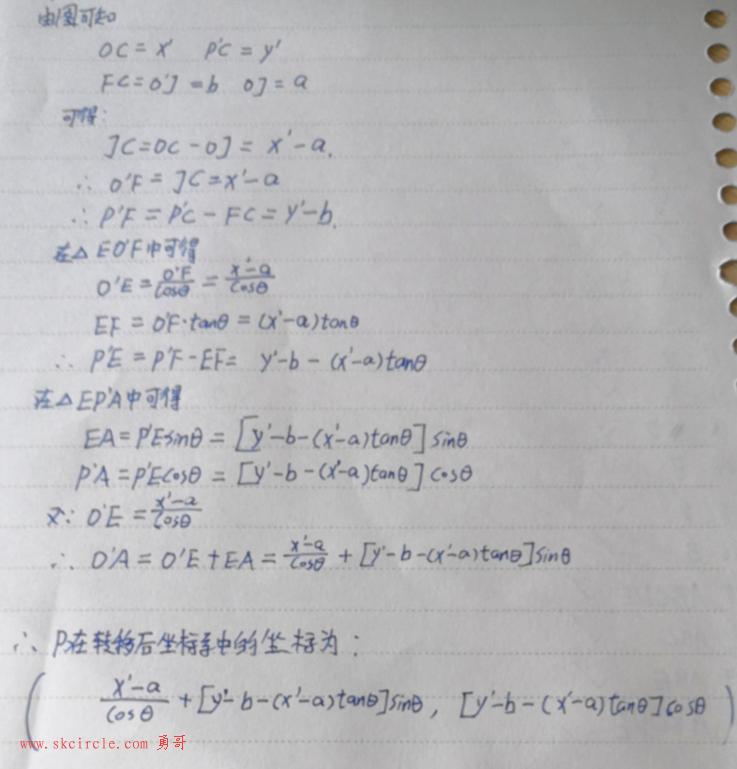 由图可知
OC = x' P'C = y'
FC = O'J = b OJ = a
可得:
JC = OC - OJ = x' - a.
∴ O'F = JC = x' - a
∴ P'F = P'C - FC = y' - b.
在△EO'F中可得
O'E = O'F/cosθ = x'-a/cosθ
EF = O'F·tanθ = (x'-a)tanθ
∴ P'E = P'F - EF = y'-b-(x'-a)tanθ
在△EP'A中可得
EA = P'Esinθ = [y'-b-(x'-a)tanθ]sinθ
P'A = P'Ecosθ = [y'-b-(x'-a)tanθ]cosθ
又∵ O'E = x'-a/cosθ
∴ O'A = O'E + EA = x'-a/cosθ + [y'-b-(x'-a)tanθ]sinθ
∴ P在转移后坐标系中的坐标为:
(x'-a/cosθ + [y'-b-(x'-a)tanθ]sinθ, [y'-b-(x'-a)tanθ]cosθ)
www.skcircle.com 勇哥